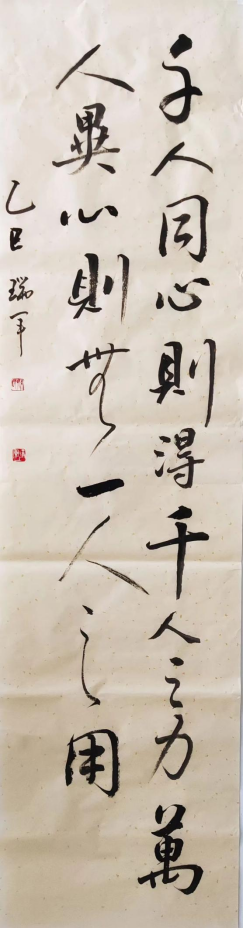 千人同心則得千人之力萬
人異心則無一人之用
乙巳 瑞军